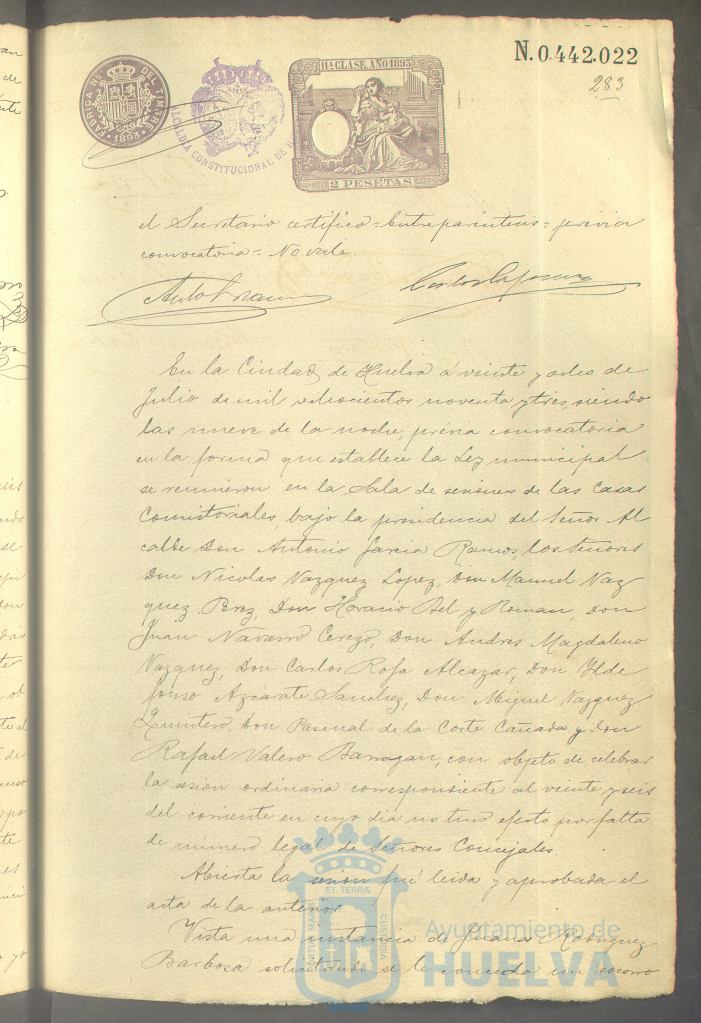 N. 0.442.022
283
FABRICA NL. DEL TIMBRE
1893
ALCALDIA CONSTITUCIONAL DE H
11ª CLASE AÑO 1893
2 PESETAS
el Secretario certifico = Entreparentesis = previa
convocatoria = No vale
En la Ciudad de Huelva á veinte y ocho de
Julio de mil ochocientos noventa y tres, siendo
las nueve de la noche, prévia convocatoria
en la forma que establece la Ley municipal
se reunieron en la Sala de sesiones de las Casas
Consistoriales, bajo la presidencia del Señor Al
calde Don Antonio Garcia Ramos, los Señores
Don Nicolas Vazquez Lopez, Don Manuel Vaz
quez Prez, Don Horacio Bel y Roman, Don
Juan Navarro Cerezo, Don Andres Magdaleno
Vazquez, Don Carlos Rofa Alcazar, Don Ylde
fonso Azcarate Sanchez, Don Miguel Vazquez
Quintero, Don Pascual de la Corte Cañada y Don
Rafael Valero Barragan, con objeto de celebrar
la sesion ordinaria correspondiente al veinte y seis
del corriente en cuyo dia no tuvo efecto por falta
de número legal de Señores Concejales
Abierta la sesion fué leida y aprobada el
acta de la anterior.
Vista una instancia de Juana Rodriguez
Barbosa solicitando se le conceda un socorro
PORTUS MARIS ET TERRÆ CUSTODIA
Ayuntamiento de
HUELVA